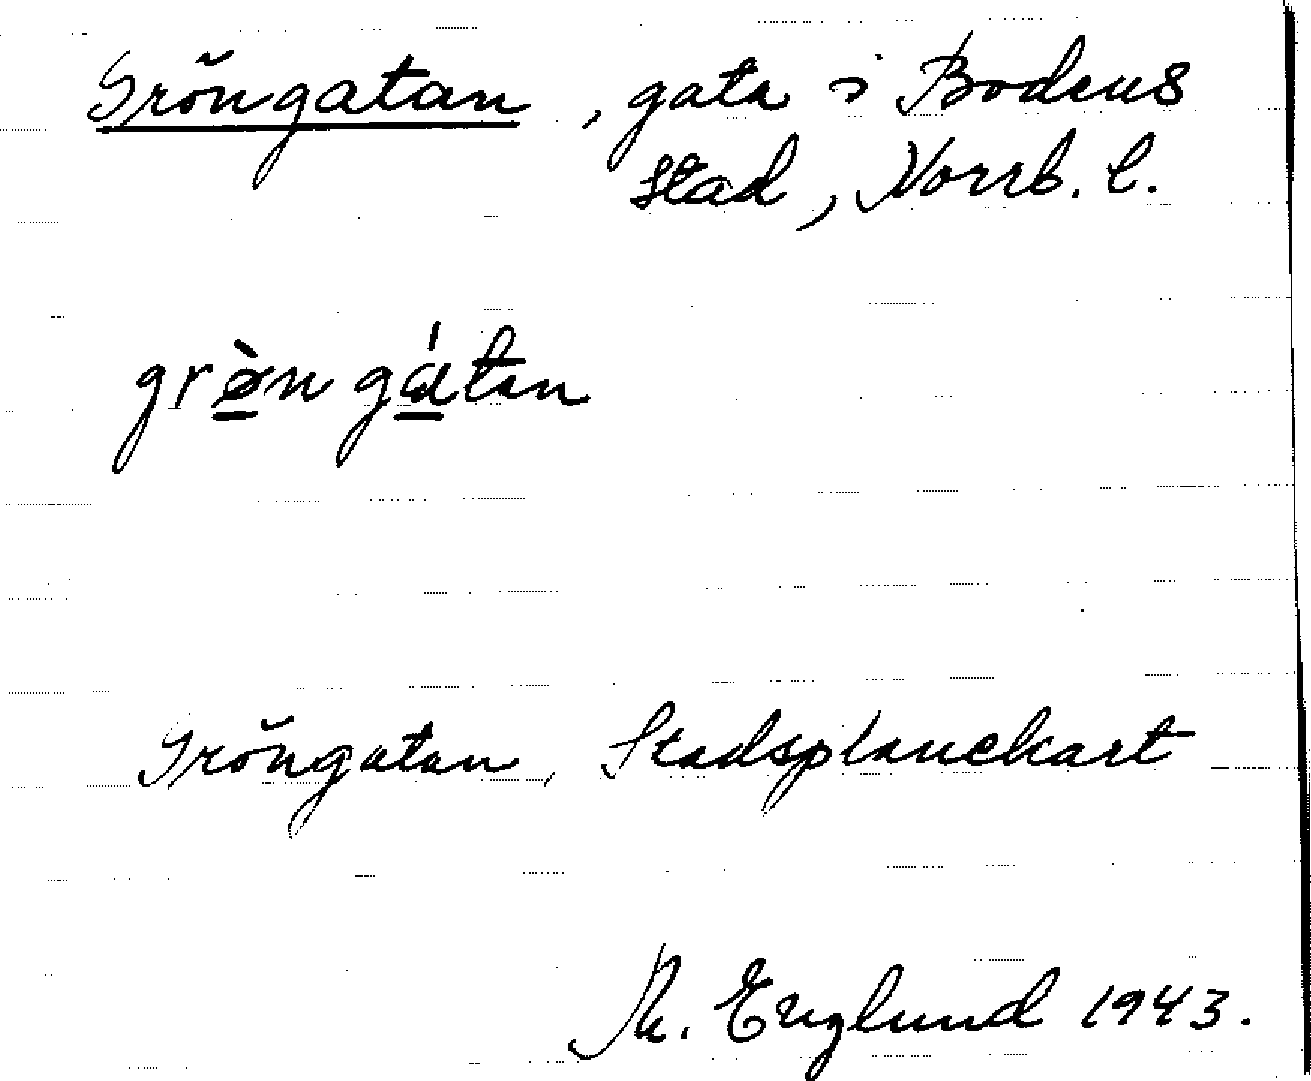 Gröngatan, gata i Bodens
stad, Norrb. l.
grø̀n gátan
Gröngatan, Stadsplanekart
M. Englund 1943.